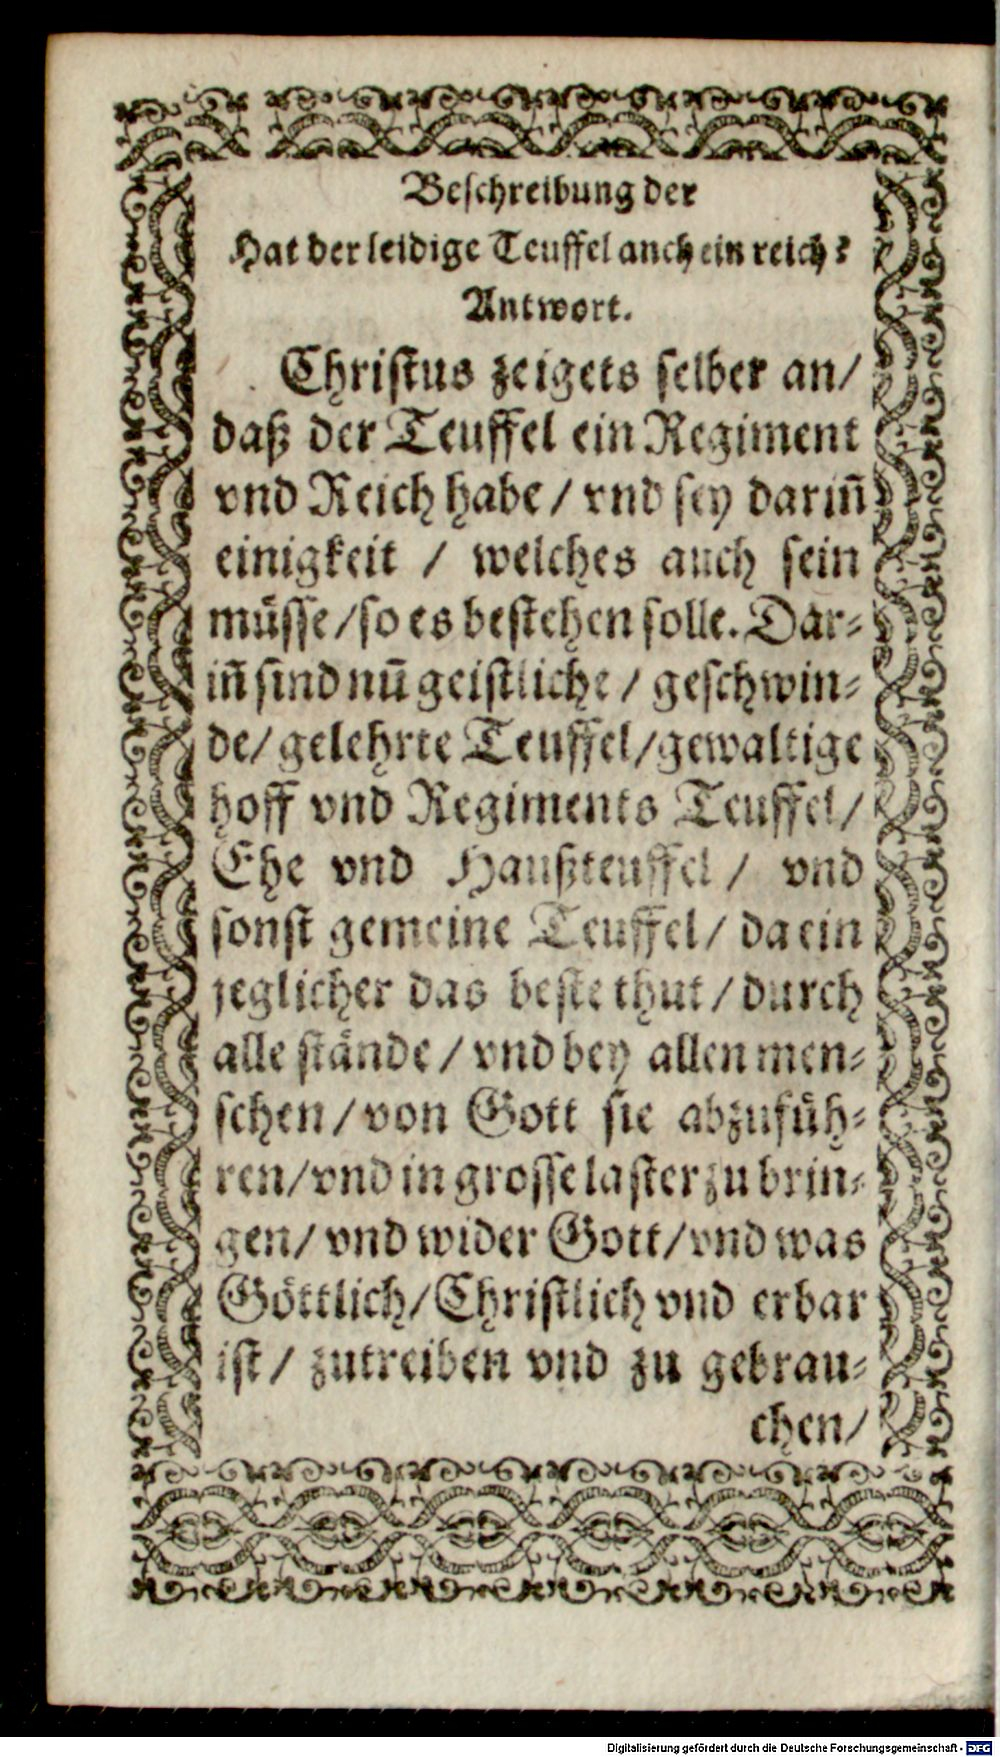 Beschreibung der
Hat der leidige Teuffel auch ein reich?
Antwort.
Christus zeigets selber an/
daß der Teuffel ein Regiment
vnd Reich habe / vnd sey darin̄
einigkeit / welches auch sein
müsse /so es bestehen solle. Dar⸗
in̄ sind nū geistliche / geschwin⸗
de/ gelehrte Teuffel/gewaltige
hoff vnd Regiments Teuffel/
Ehe vnd Haußteuffel / vnd
sonst gemeine Teuffel/ da ein
jeglicher das beste thut / durch
alle stände / vnd bey allen men⸗
schen / von Gott sie abzufüh⸗
ren/vnd in grosse laster zu brin⸗
gen/ vnd wider Gott/vnd was
Göttlich/Christlich vnd erbar
ist / zutreiben vnd zu gebrau⸗
chen/
Digitalisierung gefördert durch die Deutsche Forschungsgemeinschaft - DFG